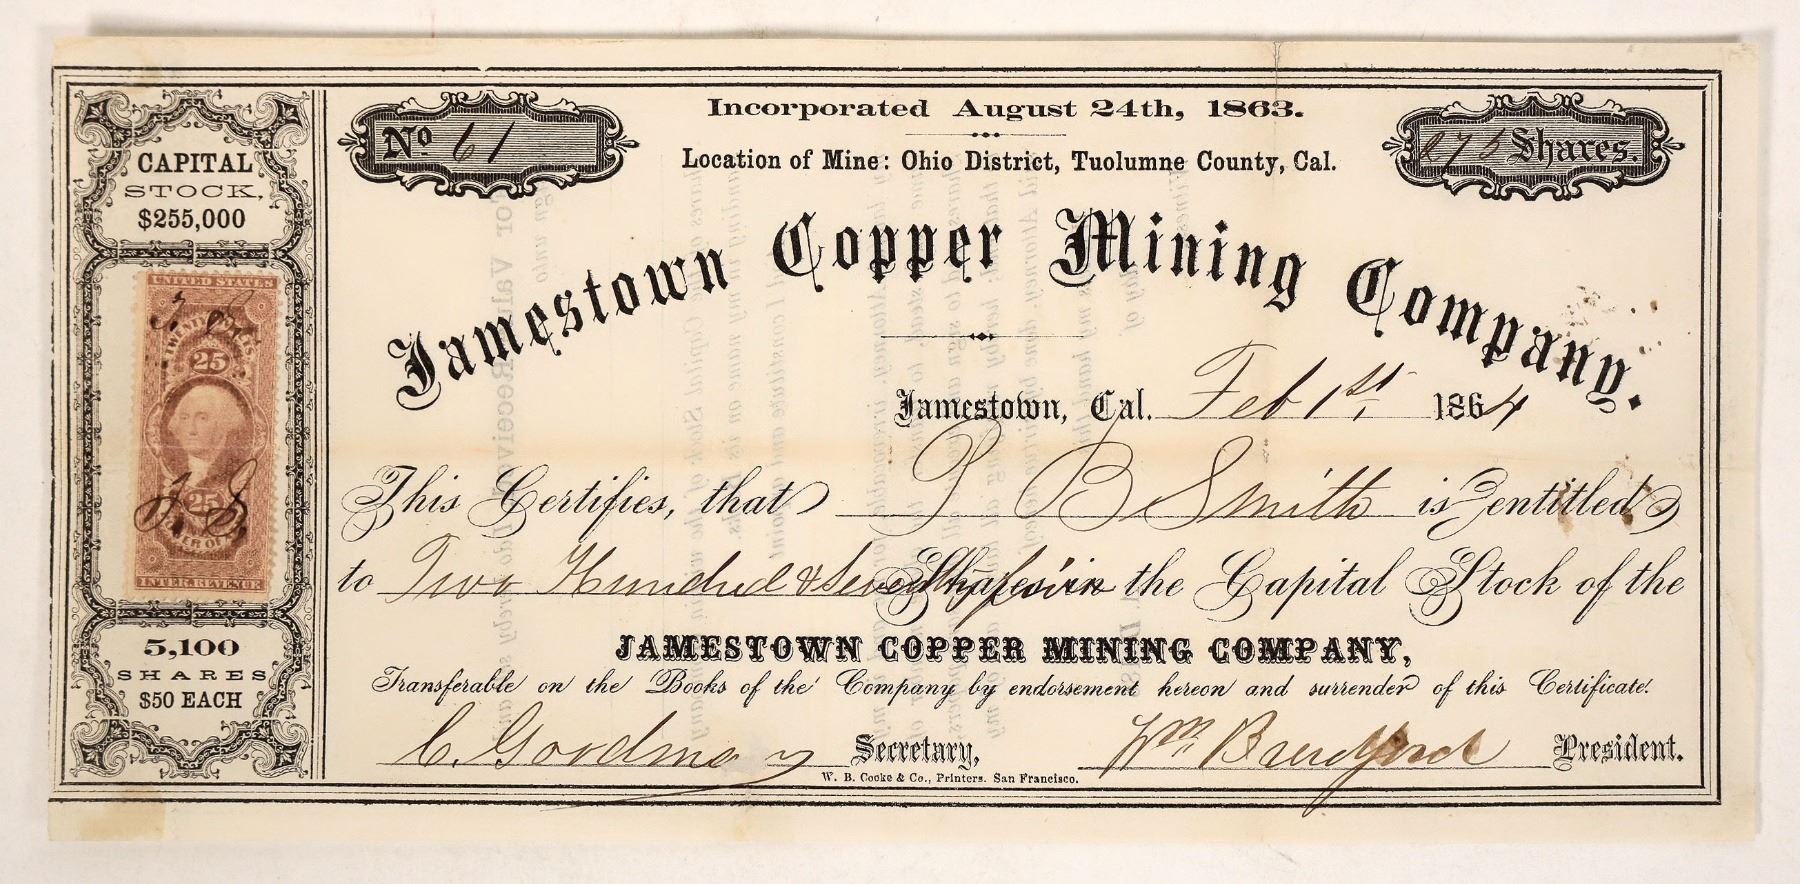 Incorporated August 24th, 1863.
No 61
275 Shares.
Location of Mine: Ohio District, Tuolumne County, Cal.
Jamestown Copper Mining Company.
Jamestown, Cal. Feb 1st, 1864
This Certifies, that P B Smith is entitled
to Two Hundred & Seventy five Shares in the Capital Stock of the
JAMESTOWN COPPER MINING COMPANY,
Transferable on the Books of the Company by endorsement hereon and surrender of this Certificate.
Secretary,
Wm. President.
W. B. Cooke & Co., Printers. San Francisco.
CAPITAL
STOCK,
$255,000
UNITED STATES
25
25
INTER. REVENUE
5,100
SHARES
$50 EACH